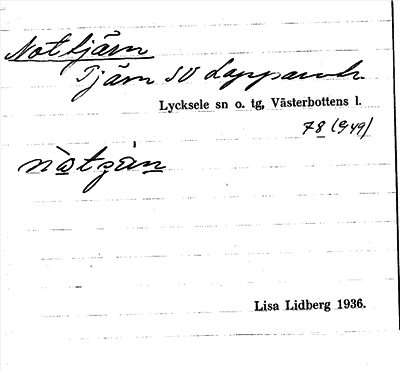 Nottjärn
Tjärn SV Lappmock
Lycksele sn o. tg, Västerbottens l.
78 (9 49)
Lisa Lidberg 1936.